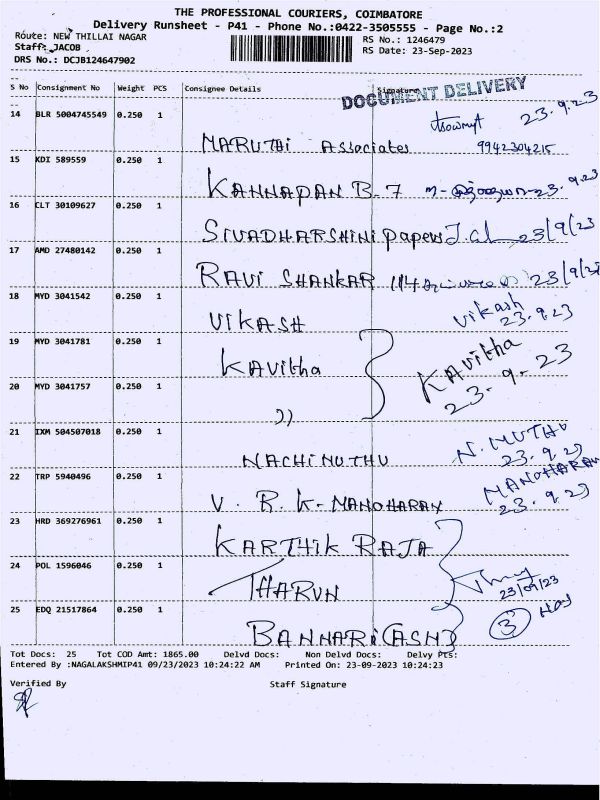 THE PROFESSIONAL COURIERS, COIMBATORE
Delivery Runsheet - P41 - Phone No.:0422-3505555 - Page No.:2
Route: NEW THILLAI NAGAR
RS No.: 1246479
Staff: JACOB
RS Date: 23-Sep-2023
DRS No.: DCJB124647902
S No Consignment No Weight PCS Consignee Details Signature
DOCUMENT DELIVERY
14 BLR 5004745549 0.250 1 23.9.23
MARUTHI Associates 9942304215
15 KDI 589559 0.250 1
KANNAPAN B.7 23.9.23
16 CLT 30109627 0.250 1
SIVADHARSHINI papers 23/9/23
17 AMD 27480142 0.250 1
RAVI SHANKAR 114 23/9/23
18 MYD 3041542 0.250 1
VIKASH Vikash 23.9.23
19 MYD 3041781 0.250 1
Kavitha Kavitha
20 MYD 3041757 0.250 1 23.9.23
))
21 IXM 504507018 0.250 1
NACHIMUTHU N. MUTHU 23.9.23
22 TRP 5940496 0.250 1 MANOHARAN
V. R. K. MANOHARAN 23.9.23
23 HRD 369276961 0.250 1
KARTHIK RAJA
24 POL 1596046 0.250 1
THARUN 23/09/23
25 EDQ 21517864 0.250 1 3
BANNARI (ASN)
Tot Docs: 25 Tot COD Amt: 1865.00 Delvd Docs: Non Delvd Docs: Delvy Pts:
Entered By :NAGALAKSHMIP41 09/23/2023 10:24:22 AM Printed On: 23-09-2023 10:24:23
Verified By Staff Signature